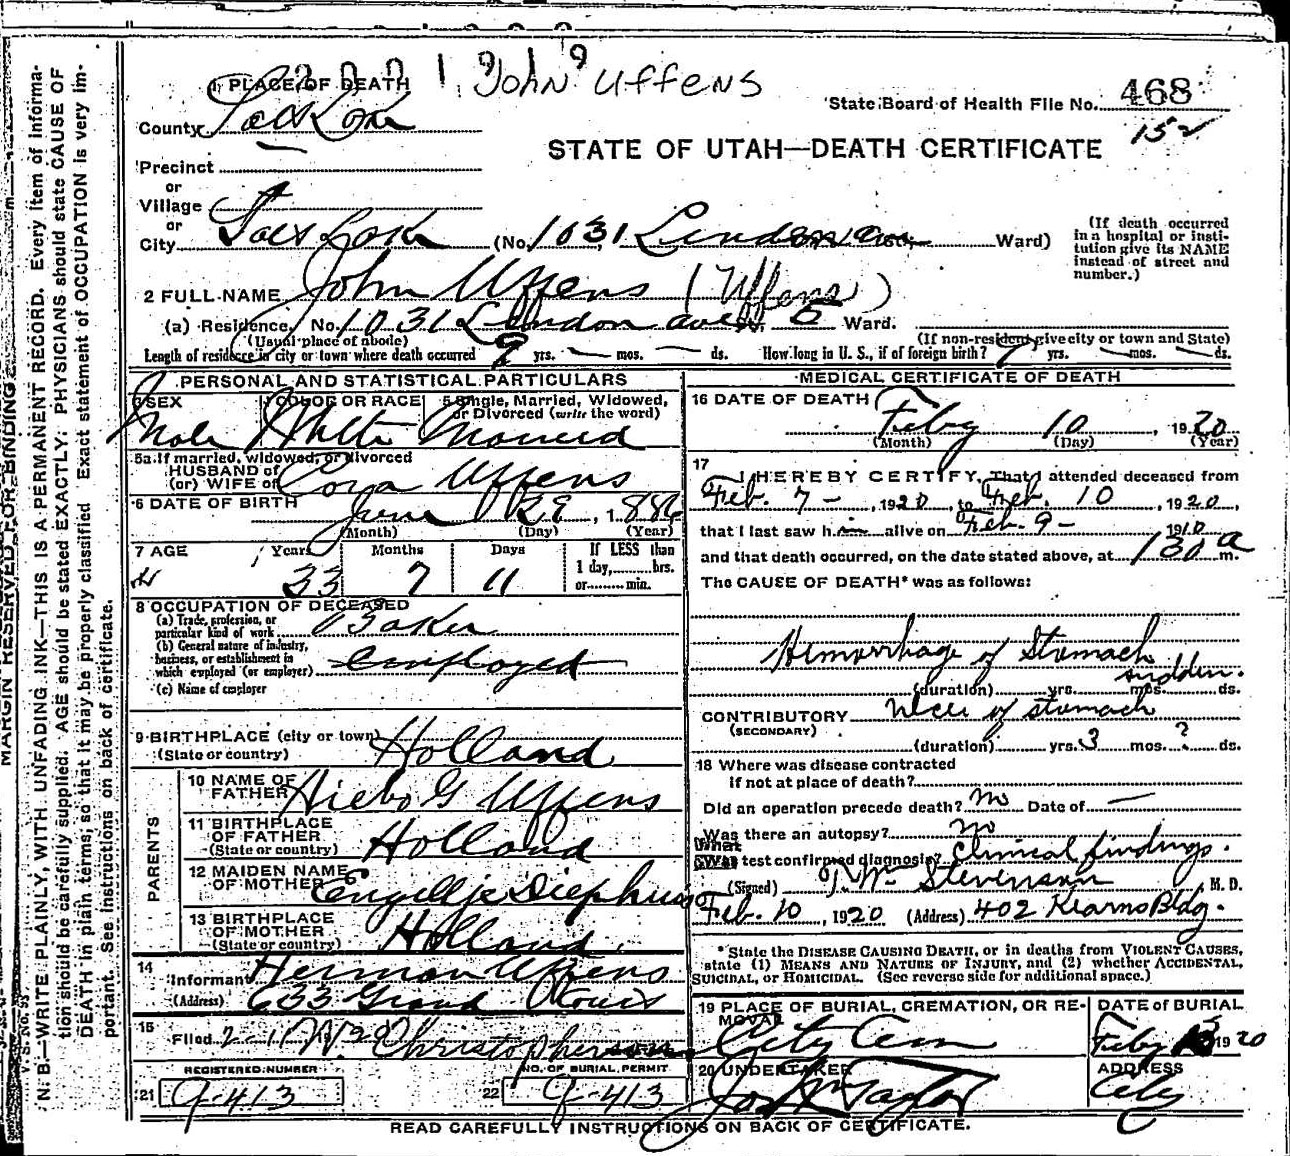 John Uffens
1 PLACE OF DEATH
State Board of Health File No. 468
County Salt Lake
152
STATE OF UTAH—DEATH CERTIFICATE
Precinct
or
Village
or
City Salt Lake (No. 1031 Lindon ave, Ward)
(If death occurred
in a hospital or insti-
tution give its NAME
instead of street and
number.)
2 FULL NAME John Uffens (Uffens)
(a) Residence. No. 1031 Lindon ave St. 5 Ward.
(Usual place of abode) (If non-resident, give city or town and State)
Length of residence in city or town where death occurred 9 yrs. — mos. — ds. How long in U. S., if of foreign birth? 9 yrs. — mos. — ds.
PERSONAL AND STATISTICAL PARTICULARS
3 SEX 4 COLOR OR RACE 5 Single, Married, Widowed,
or Divorced (write the word)
Male White Married
5a If married, widowed, or divorced
HUSBAND of
(or) WIFE of Cora Uffens
6 DATE OF BIRTH
June 29, 1886
(Month) (Day) (Year)
7 AGE Years Months Days If LESS than
1 day, hrs.
or min.
33 7 11
8 OCCUPATION OF DECEASED
(a) Trade, profession, or
particular kind of work Baker
(b) General nature of industry,
business, or establishment in
which employed (or employer) Employed
(c) Name of employer
9 BIRTHPLACE (city or town)
(State or country) Holland
PARENTS
10 NAME OF
FATHER Hiebo G Uffens
11 BIRTHPLACE
OF FATHER
(State or country) Holland
12 MAIDEN NAME
OF MOTHER Engeltje Diephuis
13 BIRTHPLACE
OF MOTHER
(State or country) Holland
14
Informant Herman Uffens
(Address) 633 Grand
15
Filed 2-11 W. Christopherson
REGISTERED NUMBER NO. OF BURIAL PERMIT
21 9-413 22 9-413
MEDICAL CERTIFICATE OF DEATH
16 DATE OF DEATH
Feby 10, 1920
(Month) (Day) (Year)
17
I HEREBY CERTIFY, That I attended deceased from
Feb. 7 -, 1920, to Feb. 10, 1920,
that I last saw him alive on Feb. 9 - 1910
and that death occurred, on the date stated above, at 130 a m.
The CAUSE OF DEATH* was as follows:
Hemorrhage of Stomach
sudden.
(duration) yrs. mos. ds.
CONTRIBUTORY Ulcer of stomach
(SECONDARY)
(duration) yrs. 3 mos. ? ds.
18 Where was disease contracted
if not at place of death?
Did an operation precede death? no Date of —
Was there an autopsy? no
What test confirmed diagnosis? Clinical findings.
(Signed) Stevenson, M. D.
Feb. 10, 1920 (Address) 402 Kearns Bldg.
* State the DISEASE CAUSING DEATH, or in deaths from VIOLENT CAUSES,
state (1) MEANS AND NATURE OF INJURY, and (2) whether ACCIDENTAL,
SUICIDAL, or HOMICIDAL. (See reverse side for additional space.)
19 PLACE OF BURIAL, CREMATION, OR RE-
MOVAL City Cem
DATE of BURIAL
Feby 1920
20 UNDERTAKER
Jos Wm Taylor
ADDRESS
City
READ CAREFULLY INSTRUCTIONS ON BACK OF CERTIFICATE.
MARGIN RESERVED FOR BINDING
N. B.—WRITE PLAINLY, WITH UNFADING INK—THIS IS A PERMANENT RECORD. Every item of informa-
tion should be carefully supplied. AGE should be stated EXACTLY. PHYSICIANS should state CAUSE OF
DEATH in plain terms, so that it may be properly classified. Exact statement of OCCUPATION is very im-
portant. See instructions on back of certificate.